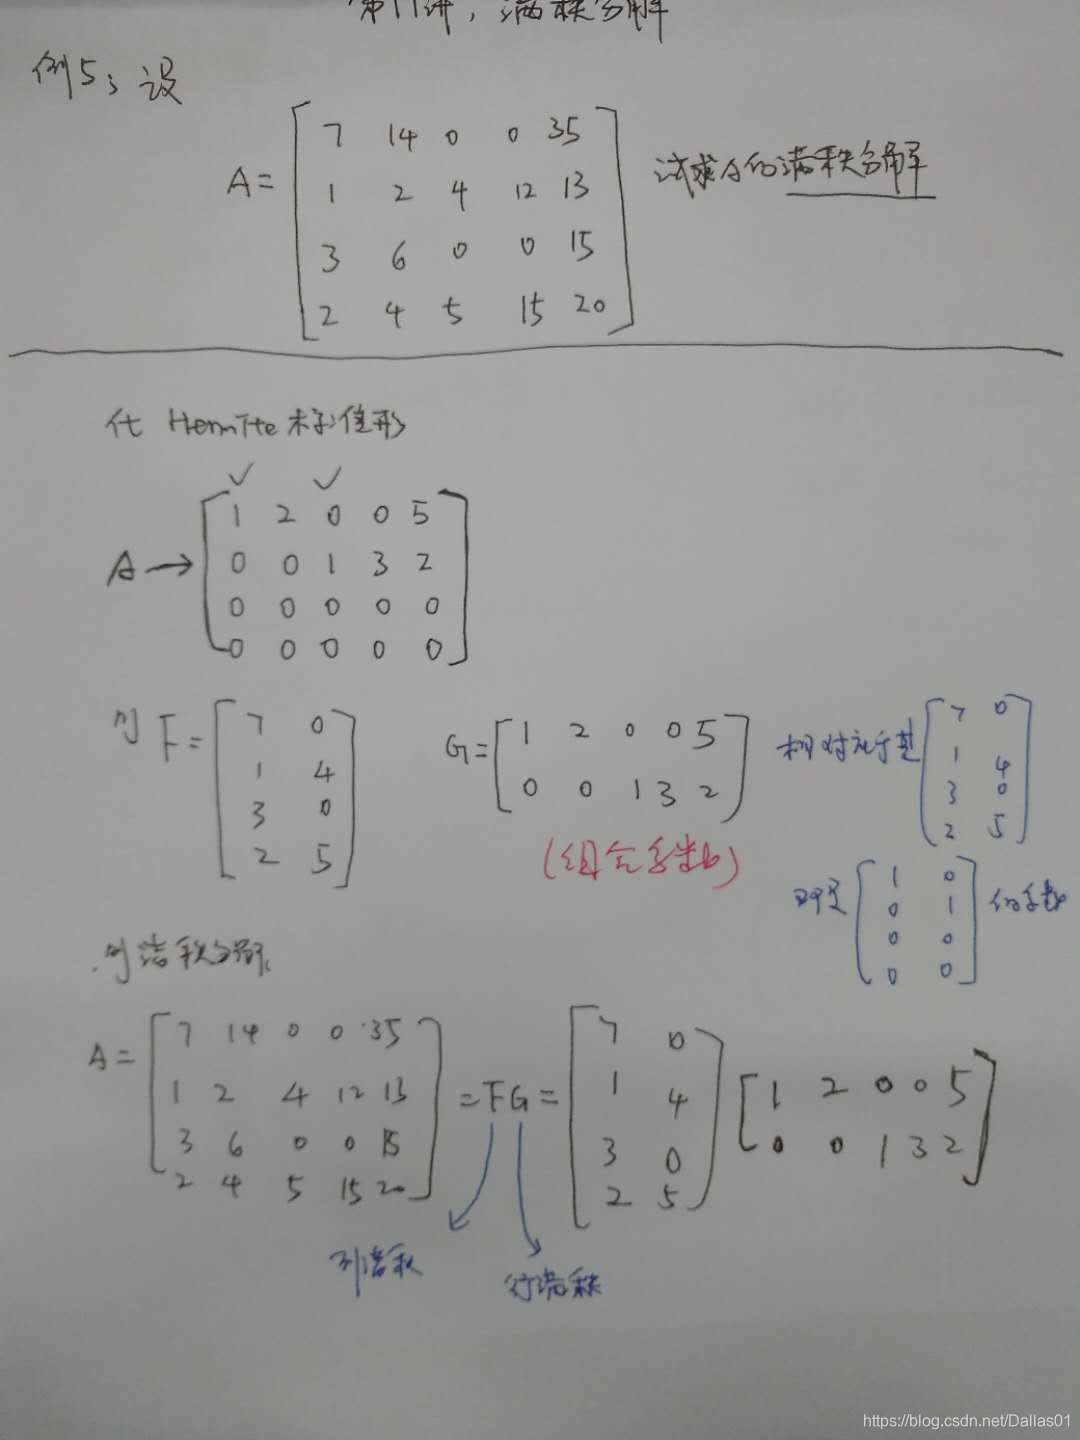 第11讲，满秩分解
例5；设
A= [7 14 0 0 35
1 2 4 12 13
3 6 0 0 15
2 4 5 15 20] 试求A的满秩分解
化 Hermite 标准形
✓ ✓
A→ [1 2 0 0 5
0 0 1 3 2
0 0 0 0 0
0 0 0 0 0]
则 F= [7 0
1 4
3 0
2 5]
G= [1 2 0 0 5
0 0 1 3 2]
(组合系数)
相对于基 [7 0
1 4
3 0
2 5]
即是 [1 0
0 1
0 0
0 0] 的系数
则满秩分解
A= [7 14 0 0 35
1 2 4 12 13
3 6 0 0 15
2 4 5 15 20] =FG= [7 0
1 4
3 0
2 5] [1 2 0 0 5
0 0 1 3 2]
列满秩
行满秩
https://blog.csdn.net/Dallas01